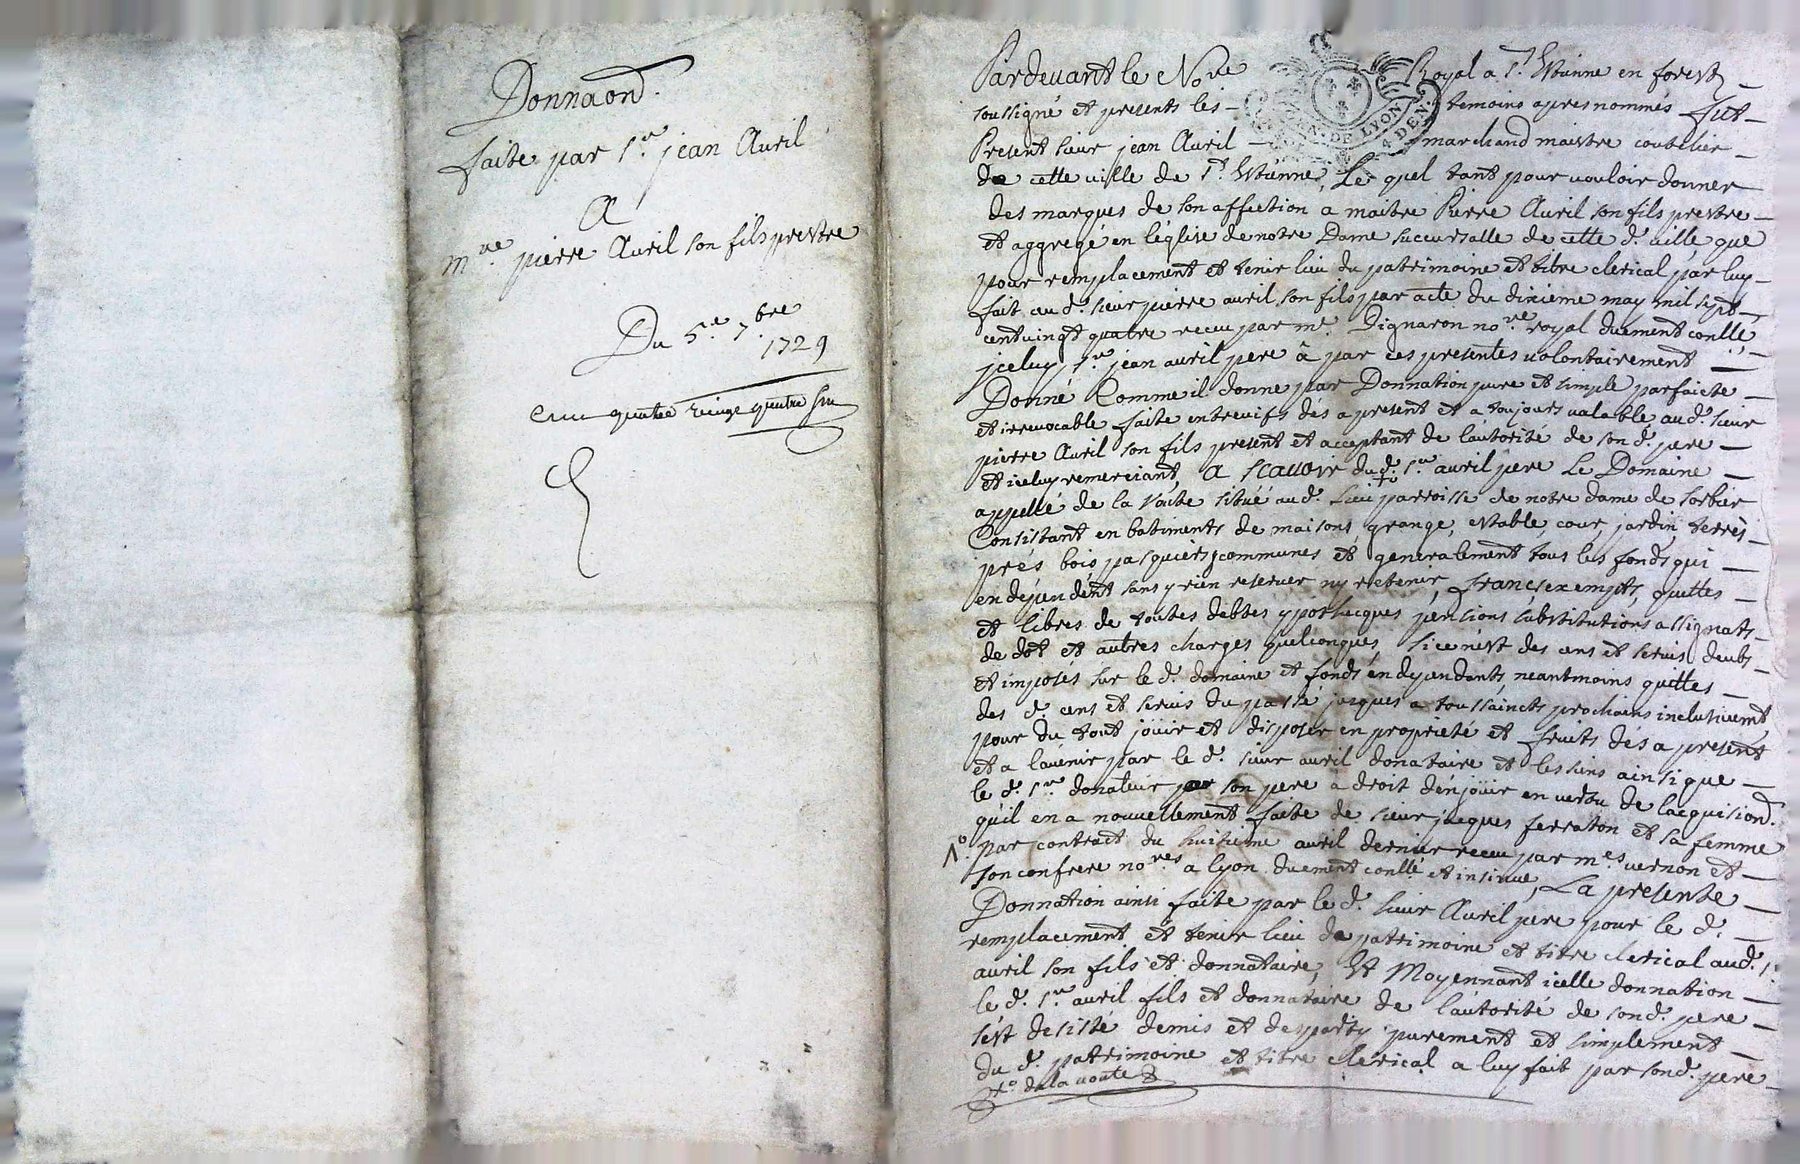 Donnaon.
faite par Sr. jean Auril
A
mre pierre Auril son fils prestre
Du 5e. 7bre
1729
quatre vingt quatre
Pardeuant le Nore Royal a St. Etienne en forest
soussigné et presents les temoins apres nommés fut
Present sieur jean Auril marchand maistre coutelier
de cette uille de St. Etienne, Le quel tant pour uouloir donner
des marques de son affection a maitre Pierre Auril son fils prestre
et aggregé en leglise de notre Dame succursalle de cette d. uille que
pour remplacement et tenir lieu du patrimoine et titre clerical par luy
fait au d. sieur pierre auril son fils par acte du dixieme may mil sept
cent uingt quatre receu par me. Dignaron nore royal duement conllé
jceluy sr. jean auril pere â par ces presentes uolontairement
Donné Comme il donne par Donnation pure et simple parfaite
et irreuocable faite entreuifs dés a present et a toujours ualable au d. sieur
pierre Auril son fils present et acceptant de lautorité de son d. pere
et iceluy remerciant, A Scauoir du d. sr auril pere Le Domaine
appellé de la Voute situé au d. Lieu parroisse de notre dame de sorbier
Consistant en batiments de maisons, grange, estable, cour, jardin, terres
prés bois pasquiers communes et generalement tous les fonds qui
en dépendent sans y rien reseruer ny retenir, francs, exempts, quittes
et libres de toutes debtes ypothecques pensions substitutions assignats
de dot et autres charges quelconques, si ce nést des cens et seruis deubs
et imposés sur le d. domaine et fonds en dependants neantmoins quittes
des d. cens et seruis du passé jusques a toussaincts prochains inclusiuement
pour du tout jöuir et disposer en proprieté et fruits dés a present
et a lauenir par le d. sieur auril donataire et les siens ainsi que
le d. sr. donateur son pere a droit dénjöuir en uertu de lacquisiond.
quil en a nouuellement faite de sieur jacques ferraton et sa femme
par contract du huitieme auril dernier receu par mes uernon et
son confrere nores a lyon duement conllé et insinué, La presente
Donnation ainsi faite par le d. sieur Auril pere pour le d.
remplacement et tenir lieu de patrimoine et titre clerical aud. s.
auril son fils et donnataire, Et Moyennant icelle donnation
le d. sr auril fils et donnataire de lautorité de son d. pere
sést desisté demis et departy purement et simplement
du d. patrimoine et titre clerical a luy fait par son d. pere
de la uoute